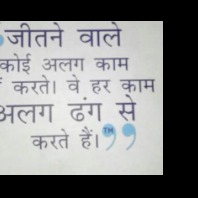 जीतने वाले
कोई अलग काम
करते। वे हर काम
अलग ढंग से
करते हैं।”
TM